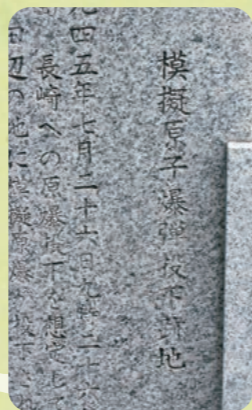 模擬原子爆弾投下跡地
九四五年七月二十六日九時二十六
長崎への原爆投下を想定し
田辺の地に模擬原爆が投下